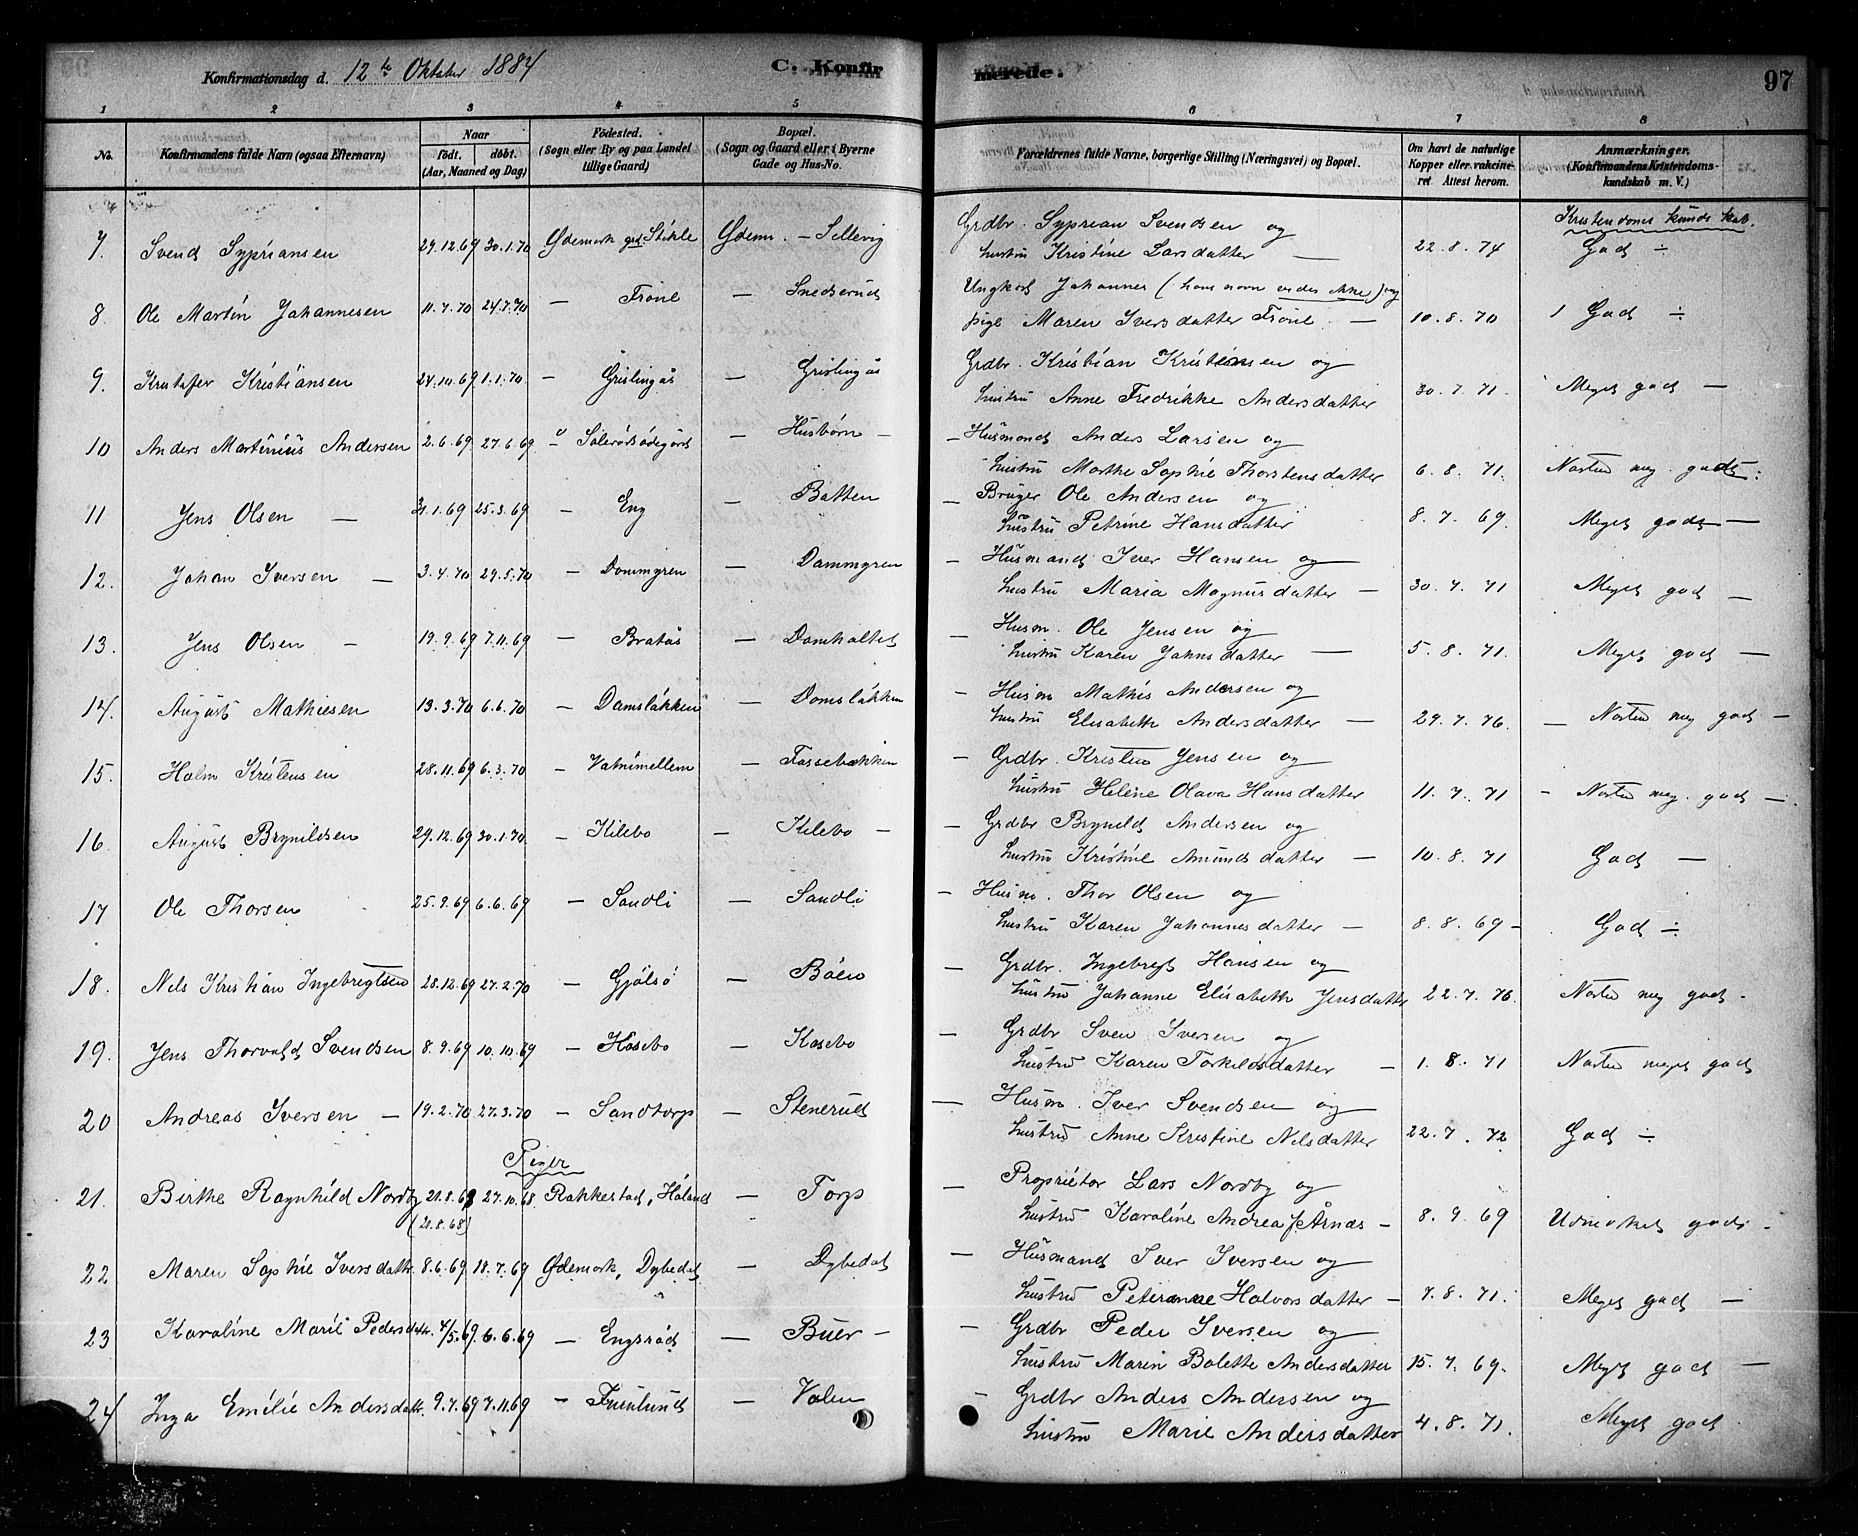 Konfirmationsdag d. 12te Oktober 1884 C. Konfirmerede. 97
1 2 3 4 5 6 7 8
No. Konfirmandens fulde Navn (ogsaa Efternavn) Naar født. døbt. (Aar, Maaned og Dag) Fødested. (Sogn eller By og paa Landet tillige Gaard) Bopæl. (Sogn og Gaard eller i Byerne Gade og Hus-No. Forældrenes fulde Navne, borgerlige Stilling (Næringsvei) og Bopæl. Om havt de naturlige Kopper eller vakcineret Attest herom. Anmærkninger. (Konfirmandens Kristendomskundskab m. V.)
Kristendoms kundskab.
7. Svend Sypriansen 29.12.69 30.1.70 Ødemark grd. Stikle Ødem. – Sellevig Grdbr. Syprian Svendsen og
Hustru Kristine Larsdatter — 22.8.74 God ÷
8 Ole Martin Johannesen 11.4.70 24.7.70 — Trone — Snedserud Ungkarl Johannes (hans navn vides ikke) og
pige Maren Iversdatter Trone — 10.8.70 1 God ÷
9. Kristofer Kristiansen 24.10.69 1.1.70 — Grislingås — Grislingås Grdbr. Kristian Kristiansen og
Hustru Anne Fredrikke Andersdatter 30.7.71. Meget god —
10 Anders Martinius Andersen 2.6.69 27.6.69 — Husbørn — Husmand Anders Larsen og
Hustru Marthe Sophie Thorstensdatter 6.8.71. Næsten meg. god
11 Jens Olsen — 31.1.69 25.3.69 — Eng — Botten — Bruger Ole Andersen og
Hustru Petrine Hansdatter 8.7.69. Meget god —
12. Johan Iversen — 3.4.70 29.5.70 — Dammyren — Dammyren — Husmand Iver Hansen og
Hustru Maria Magnusdatter — 30.7.71 Meget god —
13. Jens Olsen — 19.9.69 7.11.69 — Bratås — Damholtet — Husm. Ole Jensen og
Hustru Karen Johnsdatter — 5.8.71. Meget god —
14. August Mathiesen 13.3.70 6.6.70 — Damsløkken — Damsløkken — Husm Mathis Andersen og
Hustru Elisabeth Andersdatter — 29.7.76. — Næsten meg god —
15. Holm Kristensen 28.11.69 6.3.70 — Vatnimellem — Fossebækken — Grdbr. Kristen Jensen og
Hustru Helene Olava Hansdatter 11.7.71 — Næsten meg. god —
16 August Brynildsen 29.12.69 30.1.70 — Kilebo — Kilebo — — Grdbr Brynild Andersen og
Hustru Kristine Amundsdatter — 10.8.71 God —
17 Ole Thorsen 25.9.69 6.6.69 — Sandli — Sandli — Husm. Thor Olsen og
Hustru Karen Johannesdatter — 8.8.69 — God ÷
18. Nels Kristian Ingebregtsen 28.12.69 27.2.70 — Gjølsø — Bøen — Grdbr. Ingebregt Hansen og
Hustru Johanne Elisabeth Jensdatter 22.7.76. Næsten meg god —
19. Jens Thorvald Svendsen 8.9.69 10.10.69 — Kosebo — Kosebo — Grdbr Sven Iversen og
Hustru Karen Torkildsdatter — 1.8.71 Næsten meget god
20 Andreas Iversen — 19.2.70 27.3.70 — Sandtorp — Stenerud — Husm. Iver Svendsen og
Hustru Anne Kristine Nilsdatter 22.7.72 God ÷
Piger
21. Birthe Ragnhild Nordby 21.8.68 27.10.68 Rakkestad, Høland — Torp — Proprietør Lars Nordby og
(21.8.68) Hustru Karoline Andrea f. Årnæs — 8.9.69 Udmærket god —
22 Maren Sophie Iversdatt. 8.6.69 18.7.69 Ødemark, Dybedal — Dybedal — Husmand Iver Iversen og
Hustru Peteranne Halvorsdatter — 7.8.71. Meget god —
23 Karoline Marie Pedersdatt. 4/5.69 6.6.69 — Engsrød — Buer — — Grdbr Peder Iversen og
Hustru Marin Bolette Andersdatter 15.7.69. Meget god —
24 Inga Emilie Andersdatt. 9.7.69 7.11.69 — — Volen — Grdbr Anders Andersen og
Hustru Marie Andersdatter 4.8.71. Meget god